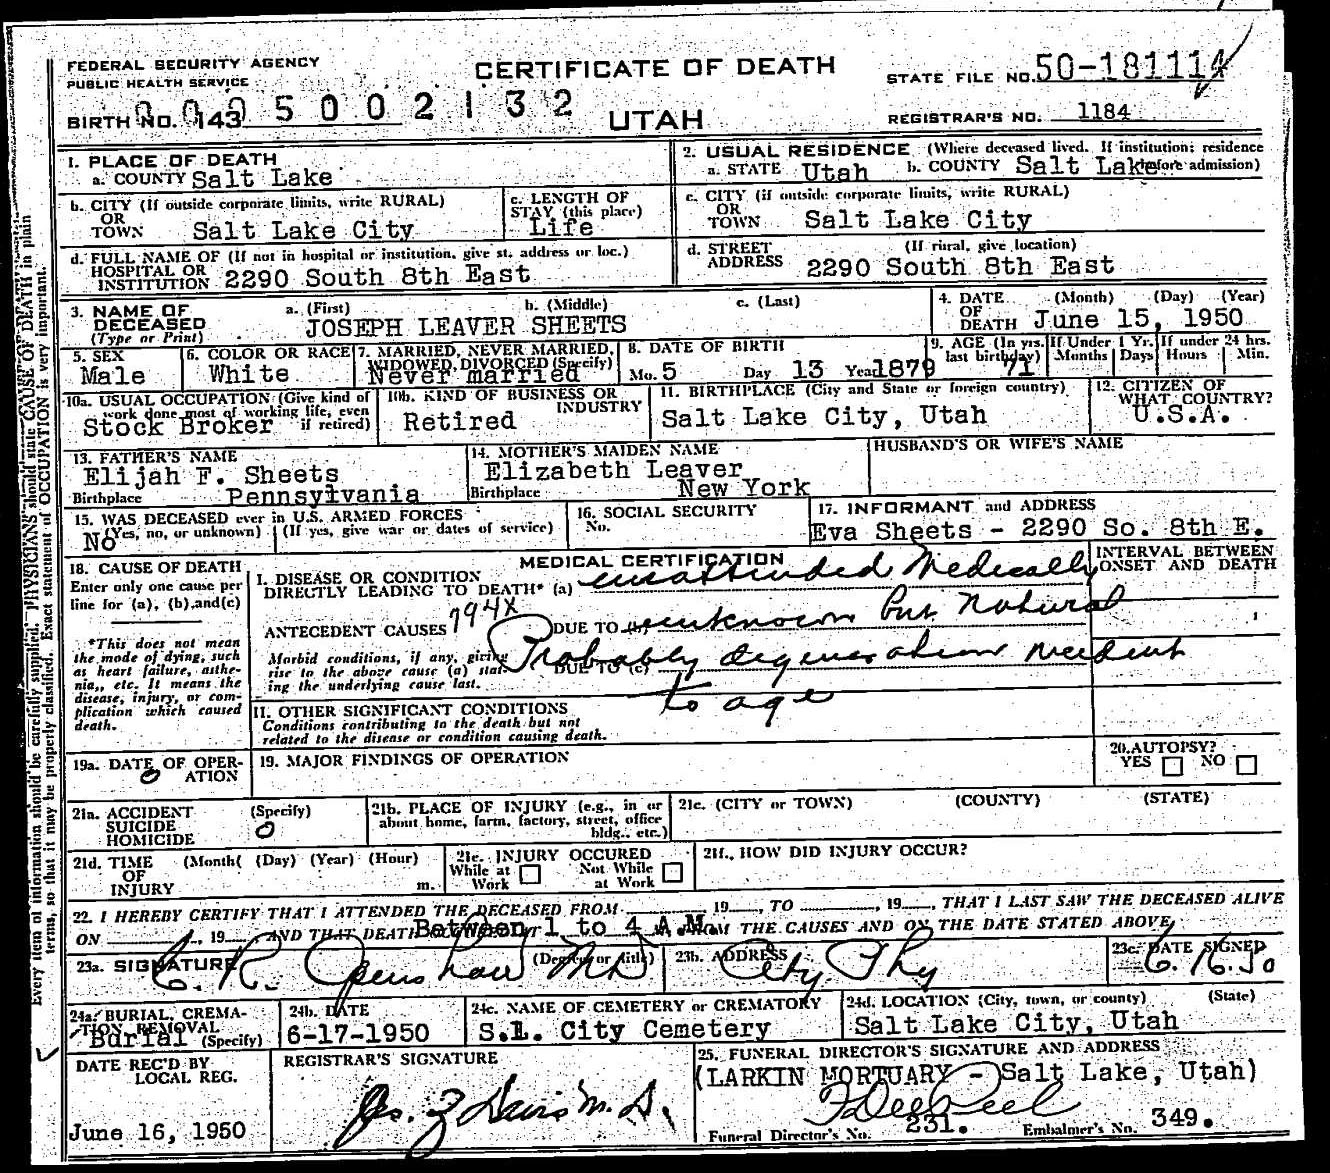 FEDERAL SECURITY AGENCY
PUBLIC HEALTH SERVICE
CERTIFICATE OF DEATH
STATE FILE NO. 50-181114
BIRTH NO. 143 5 0 0 2 1 3 2
UTAH
REGISTRAR'S NO. 1184
1. PLACE OF DEATH
a. COUNTY Salt Lake
2. USUAL RESIDENCE (Where deceased lived. If institution: residence before admission)
a. STATE Utah b. COUNTY Salt Lake
b. CITY (If outside corporate limits, write RURAL)
OR
TOWN Salt Lake City
c. LENGTH OF
STAY (this place)
Life
c. CITY (if outside corporate limits, write RURAL)
OR
TOWN Salt Lake City
d. FULL NAME OF (If not in hospital or institution, give st. address or loc.)
HOSPITAL OR
INSTITUTION 2290 South 8th East
d. STREET (If rural, give location)
ADDRESS 2290 South 8th East
3. NAME OF
DECEASED
(Type or Print)
a. (First) b. (Middle) c. (Last)
JOSEPH LEAVER SHEETS
4. DATE (Month) (Day) (Year)
OF
DEATH June 15, 1950
5. SEX
Male
6. COLOR OR RACE
White
7. MARRIED, NEVER MARRIED,
WIDOWED, DIVORCED (Specify)
Never married
8. DATE OF BIRTH
Mo. 5 Day 13 Year 1879
9. AGE (In yrs. last birthday) 71
If Under 1 Yr. Months Days
If under 24 hrs. Hours Min.
10a. USUAL OCCUPATION (Give kind of
work done most of working life, even
if retired)
Stock Broker
10b. KIND OF BUSINESS OR
INDUSTRY
Retired
11. BIRTHPLACE (City and State or foreign country)
Salt Lake City, Utah
12. CITIZEN OF
WHAT COUNTRY?
U.S.A.
13. FATHER'S NAME
Elijah F. Sheets
Birthplace Pennsylvania
14. MOTHER'S MAIDEN NAME
Elizabeth Leaver
Birthplace New York
HUSBAND'S OR WIFE'S NAME
15. WAS DECEASED ever in U.S. ARMED FORCES
(Yes, no, or unknown) (If yes, give war or dates of service)
No
16. SOCIAL SECURITY
No.
17. INFORMANT and ADDRESS
Eva Sheets - 2290 So. 8th E.
18. CAUSE OF DEATH
Enter only one cause per
line for (a), (b), and (c)
*This does not mean
the mode of dying, such
as heart failure, asthe-
nia, etc. It means the
disease, injury, or com-
plication which caused
death.
MEDICAL CERTIFICATION
INTERVAL BETWEEN
ONSET AND DEATH
I. DISEASE OR CONDITION
DIRECTLY LEADING TO DEATH* (a) unattended Medically
ANTECEDENT CAUSES 794X DUE TO (b) unknown but Natural
Morbid conditions, if any, giving
rise to the above cause (a) stat-
ing the underlying cause last.
DUE TO (c) Probably degeneration incident
to age
II. OTHER SIGNIFICANT CONDITIONS
Conditions contributing to the death but not
related to the disease or condition causing death.
19a. DATE OF OPER-
ATION
0
19. MAJOR FINDINGS OF OPERATION
20. AUTOPSY?
YES NO
21a. ACCIDENT (Specify)
SUICIDE
HOMICIDE
0
21b. PLACE OF INJURY (e.g., in or
about home, farm, factory, street, office
bldg., etc.)
21c. (CITY or TOWN) (COUNTY) (STATE)
21d. TIME (Month( (Day) (Year) (Hour)
OF
INJURY m.
21e. INJURY OCCURED
While at Work
Not While at Work
21f., HOW DID INJURY OCCUR?
22. I HEREBY CERTIFY THAT I ATTENDED THE DECEASED FROM 19, TO , 19, THAT I LAST SAW THE DECEASED ALIVE
ON , 19 AND THAT DEATH Between 1 to 4 A.M. FROM THE CAUSES AND ON THE DATE STATED ABOVE,
23a. SIGNATURE (Degree or title)
C. R. Openshaw MD
23b. ADDRESS
City Phy
23c. DATE SIGNED
6.16.50
24a. BURIAL, CREMA-
TION, REMOVAL
(Specify)
Burial
24b. DATE
6-17-1950
24c. NAME OF CEMETERY or CREMATORY
S.L. City Cemetery
24d. LOCATION (City, town, or county) (State)
Salt Lake City, Utah
DATE REC'D BY
LOCAL REG.
June 16, 1950
REGISTRAR'S SIGNATURE
25. FUNERAL DIRECTOR'S SIGNATURE AND ADDRESS
(LARKIN MORTUARY - Salt Lake, Utah)
Funeral Director's No. 231. Embalmer's No. 349.
Every item of information should be carefully supplied. PHYSICIANS should state CAUSE OF DEATH in plain
terms, so that it may be properly classified. Exact statement of OCCUPATION is very important.